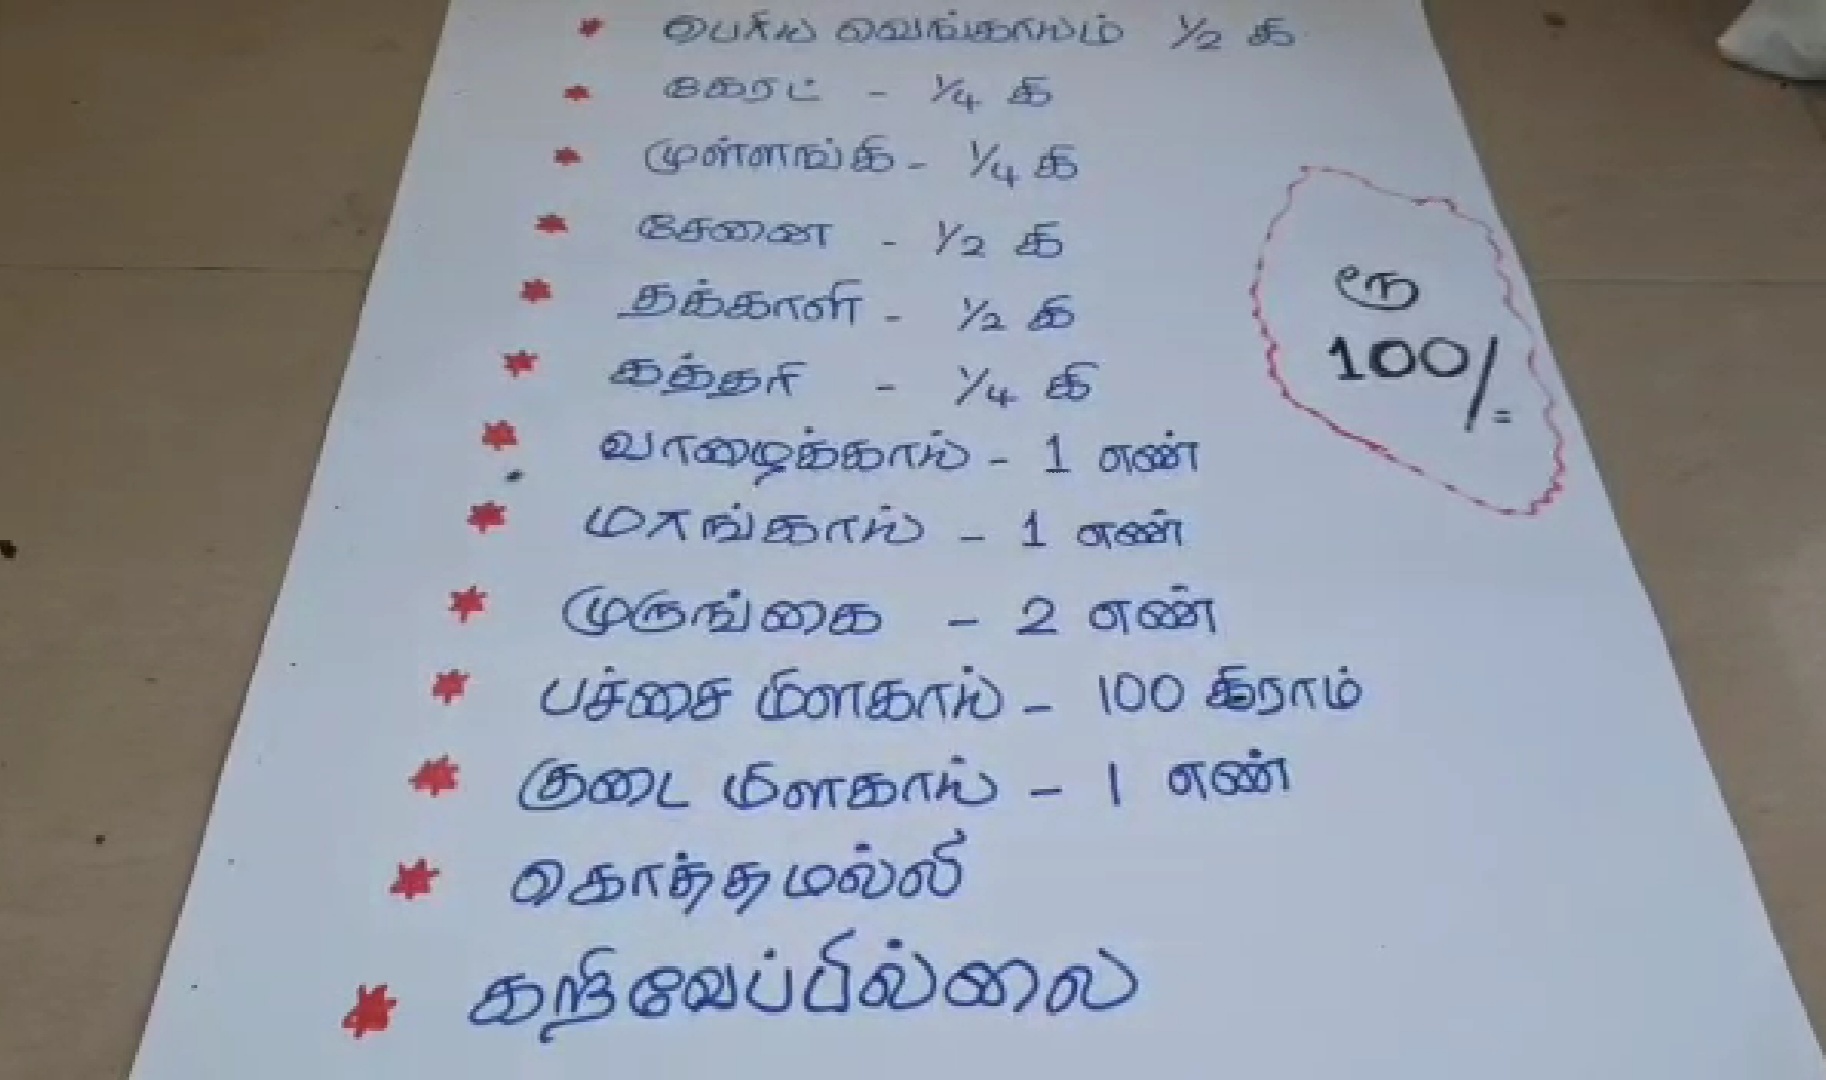 பெரிய வெங்காயம் 1/2 கி
கேரட் - 1/4 கி
முள்ளங்கி - 1/4 கி
சேனை - 1/2 கி
தக்காளி - 1/2 கி
கத்தரி - 1/4 கி
ரூ
100/=
வாழைக்காய் - 1 எண்
மாங்காய் - 1 எண்
முருங்கை - 2 எண்
பச்சை மிளகாய் - 100 கிராம்
குடை மிளகாய் - 1 எண்
கொத்தமல்லி
கறிவேப்பில்லை